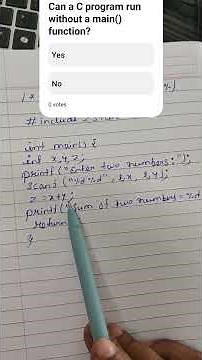 Can a C program run
without a main()
function?
Yes
No
0 votes
/*
# include
int main() {
int x,y,z;
printf("Enter two numbers:");
scanf("%d%d", &x, &y);
z = x+y;
printf("Sum of two number = %d
return
}